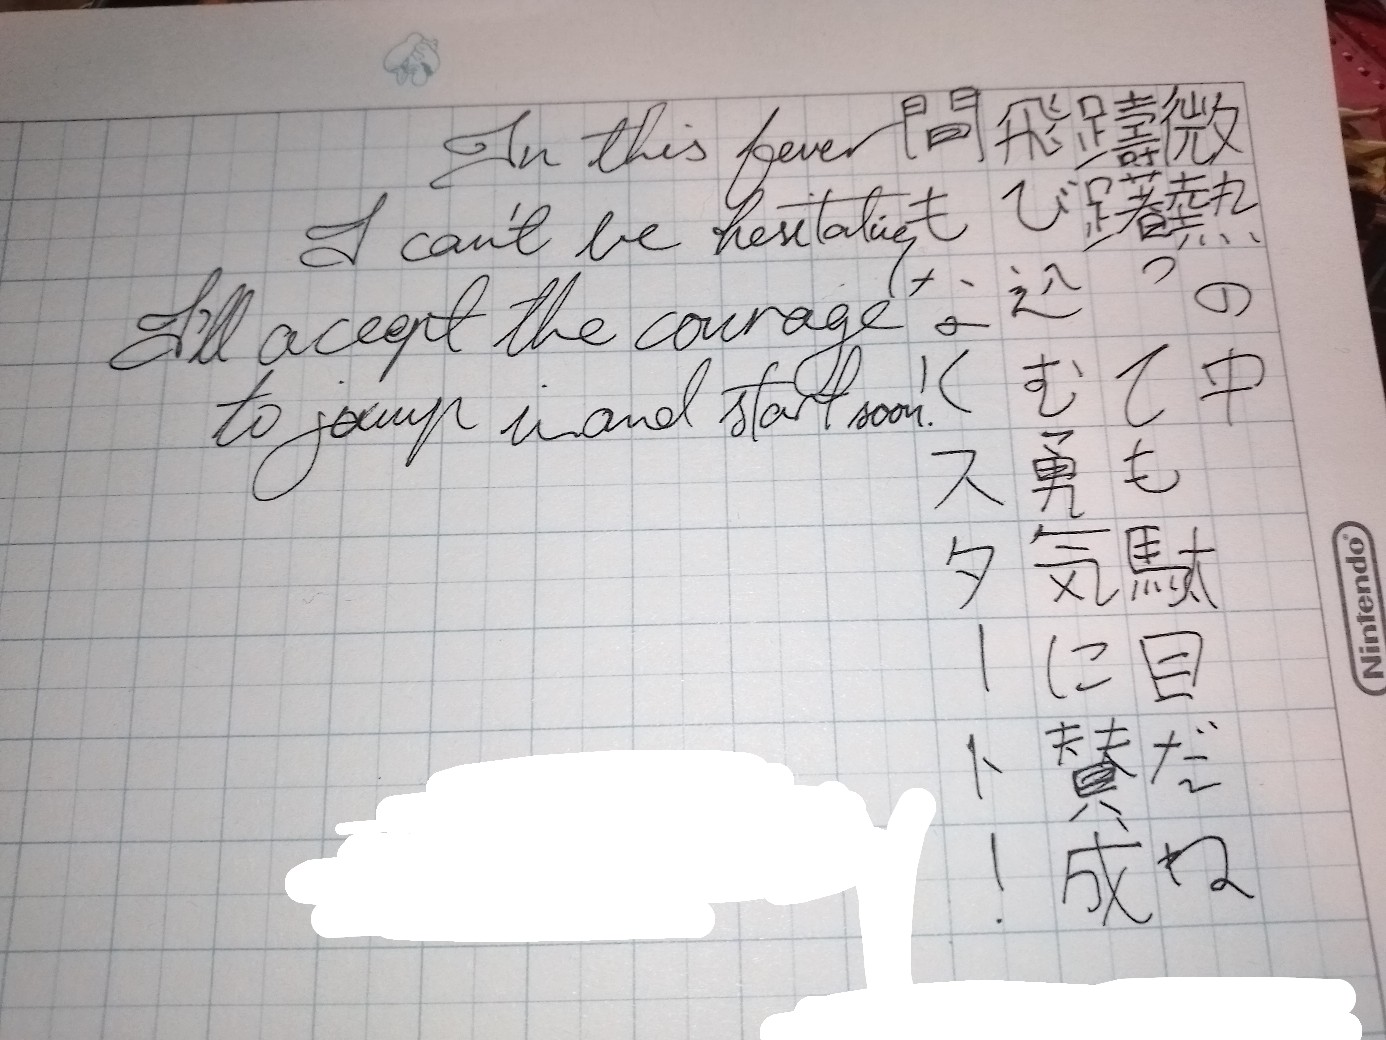 微熱の中
躊躇っても駄目だね
飛び込む勇気に賛成
間もなくスタート!
In this fever
I can't be hesitating
I'll accept the courage
to jump in and start soon!
Nintendo